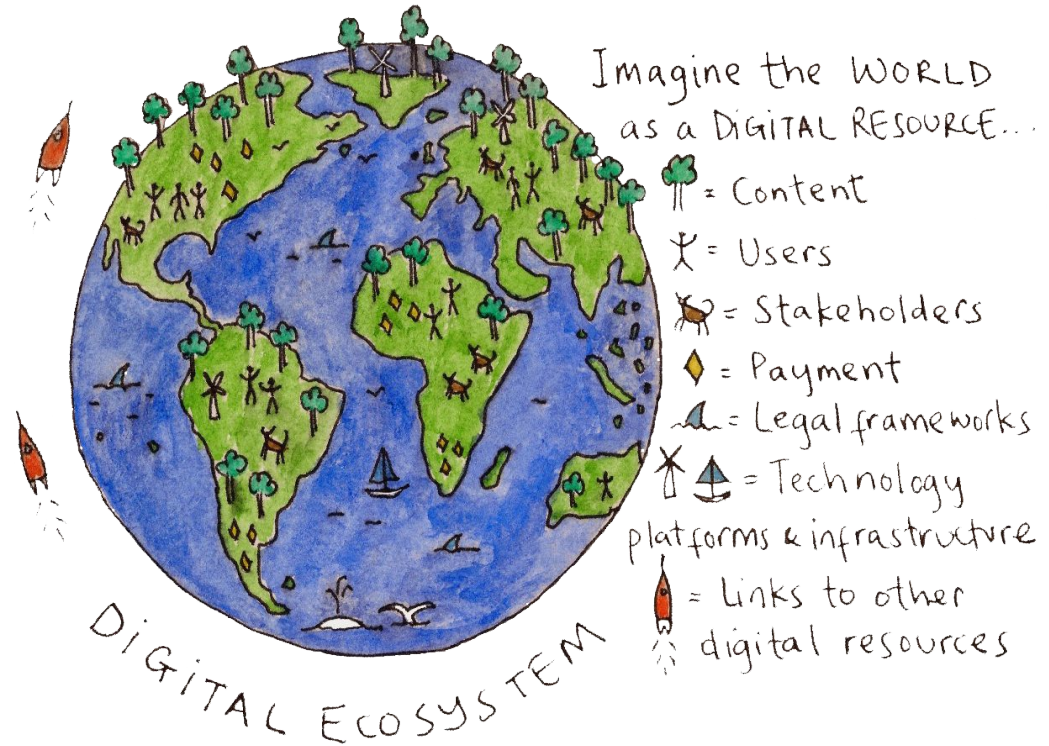 Imagine the WORLD
as a DiGITAL RESOURCE...
= Content
= Users
= Stakeholders
= Payment
= Legal frameworks
= Technology
platforms & infrastructure
= Links to other
digital resources
DiGiTAL ECOSYSTEM